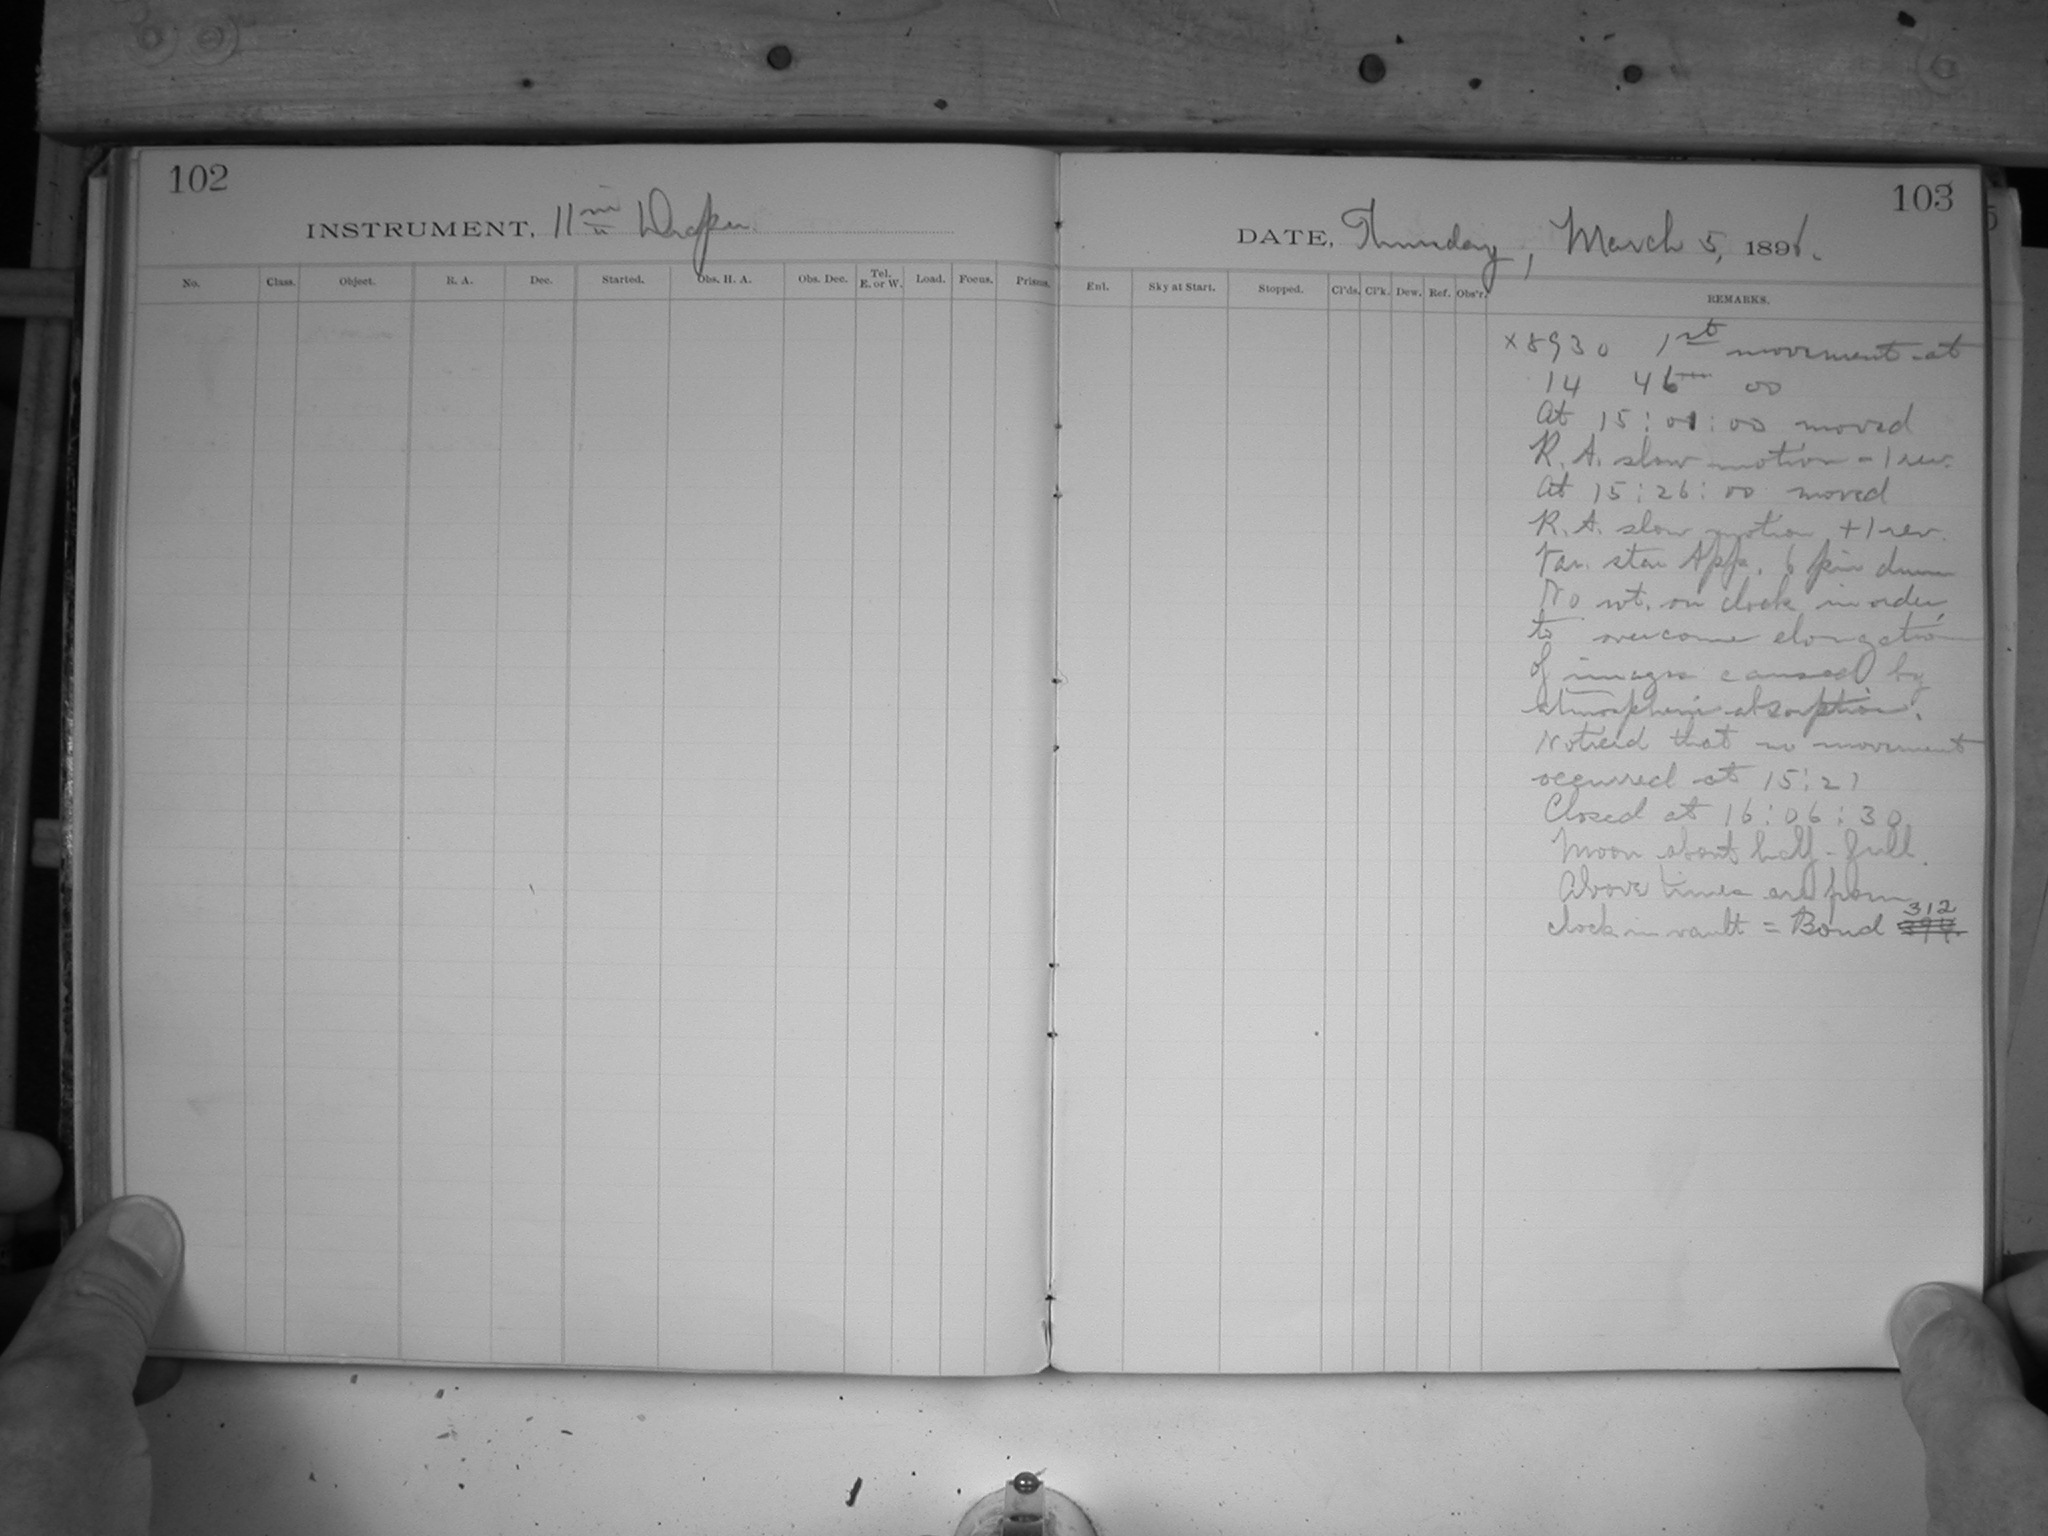 102
INSTRUMENT, 11 in Draper
No. Class. Object. R. A. Dec. Started. Obs. H. A. Obs. Dec. Tel. E. or W. Load. Focus. Prisms.
103
DATE, Thursday, March 5, 1891.
Enl. Sky at Start. Stopped. Cl'ds. Cl'k. Dew. Ref. Obs'r. REMARKS.
x8930 1st movement at
14 46m 00
At 15:01:00 moved
R. A. slow motion - 1 rev.
At 15:26:00 moved
R. A. slow motion +1 rev.
Var. star App. 6 pin drum
No wt. on clock in order
to overcome elongation
of images caused by
atmospheric absorption.
Noticed that no movement
occurred at 15:21
Closed at 16:06:30
Moon about half-full.
Above times are from
clock in vault = Bond 312